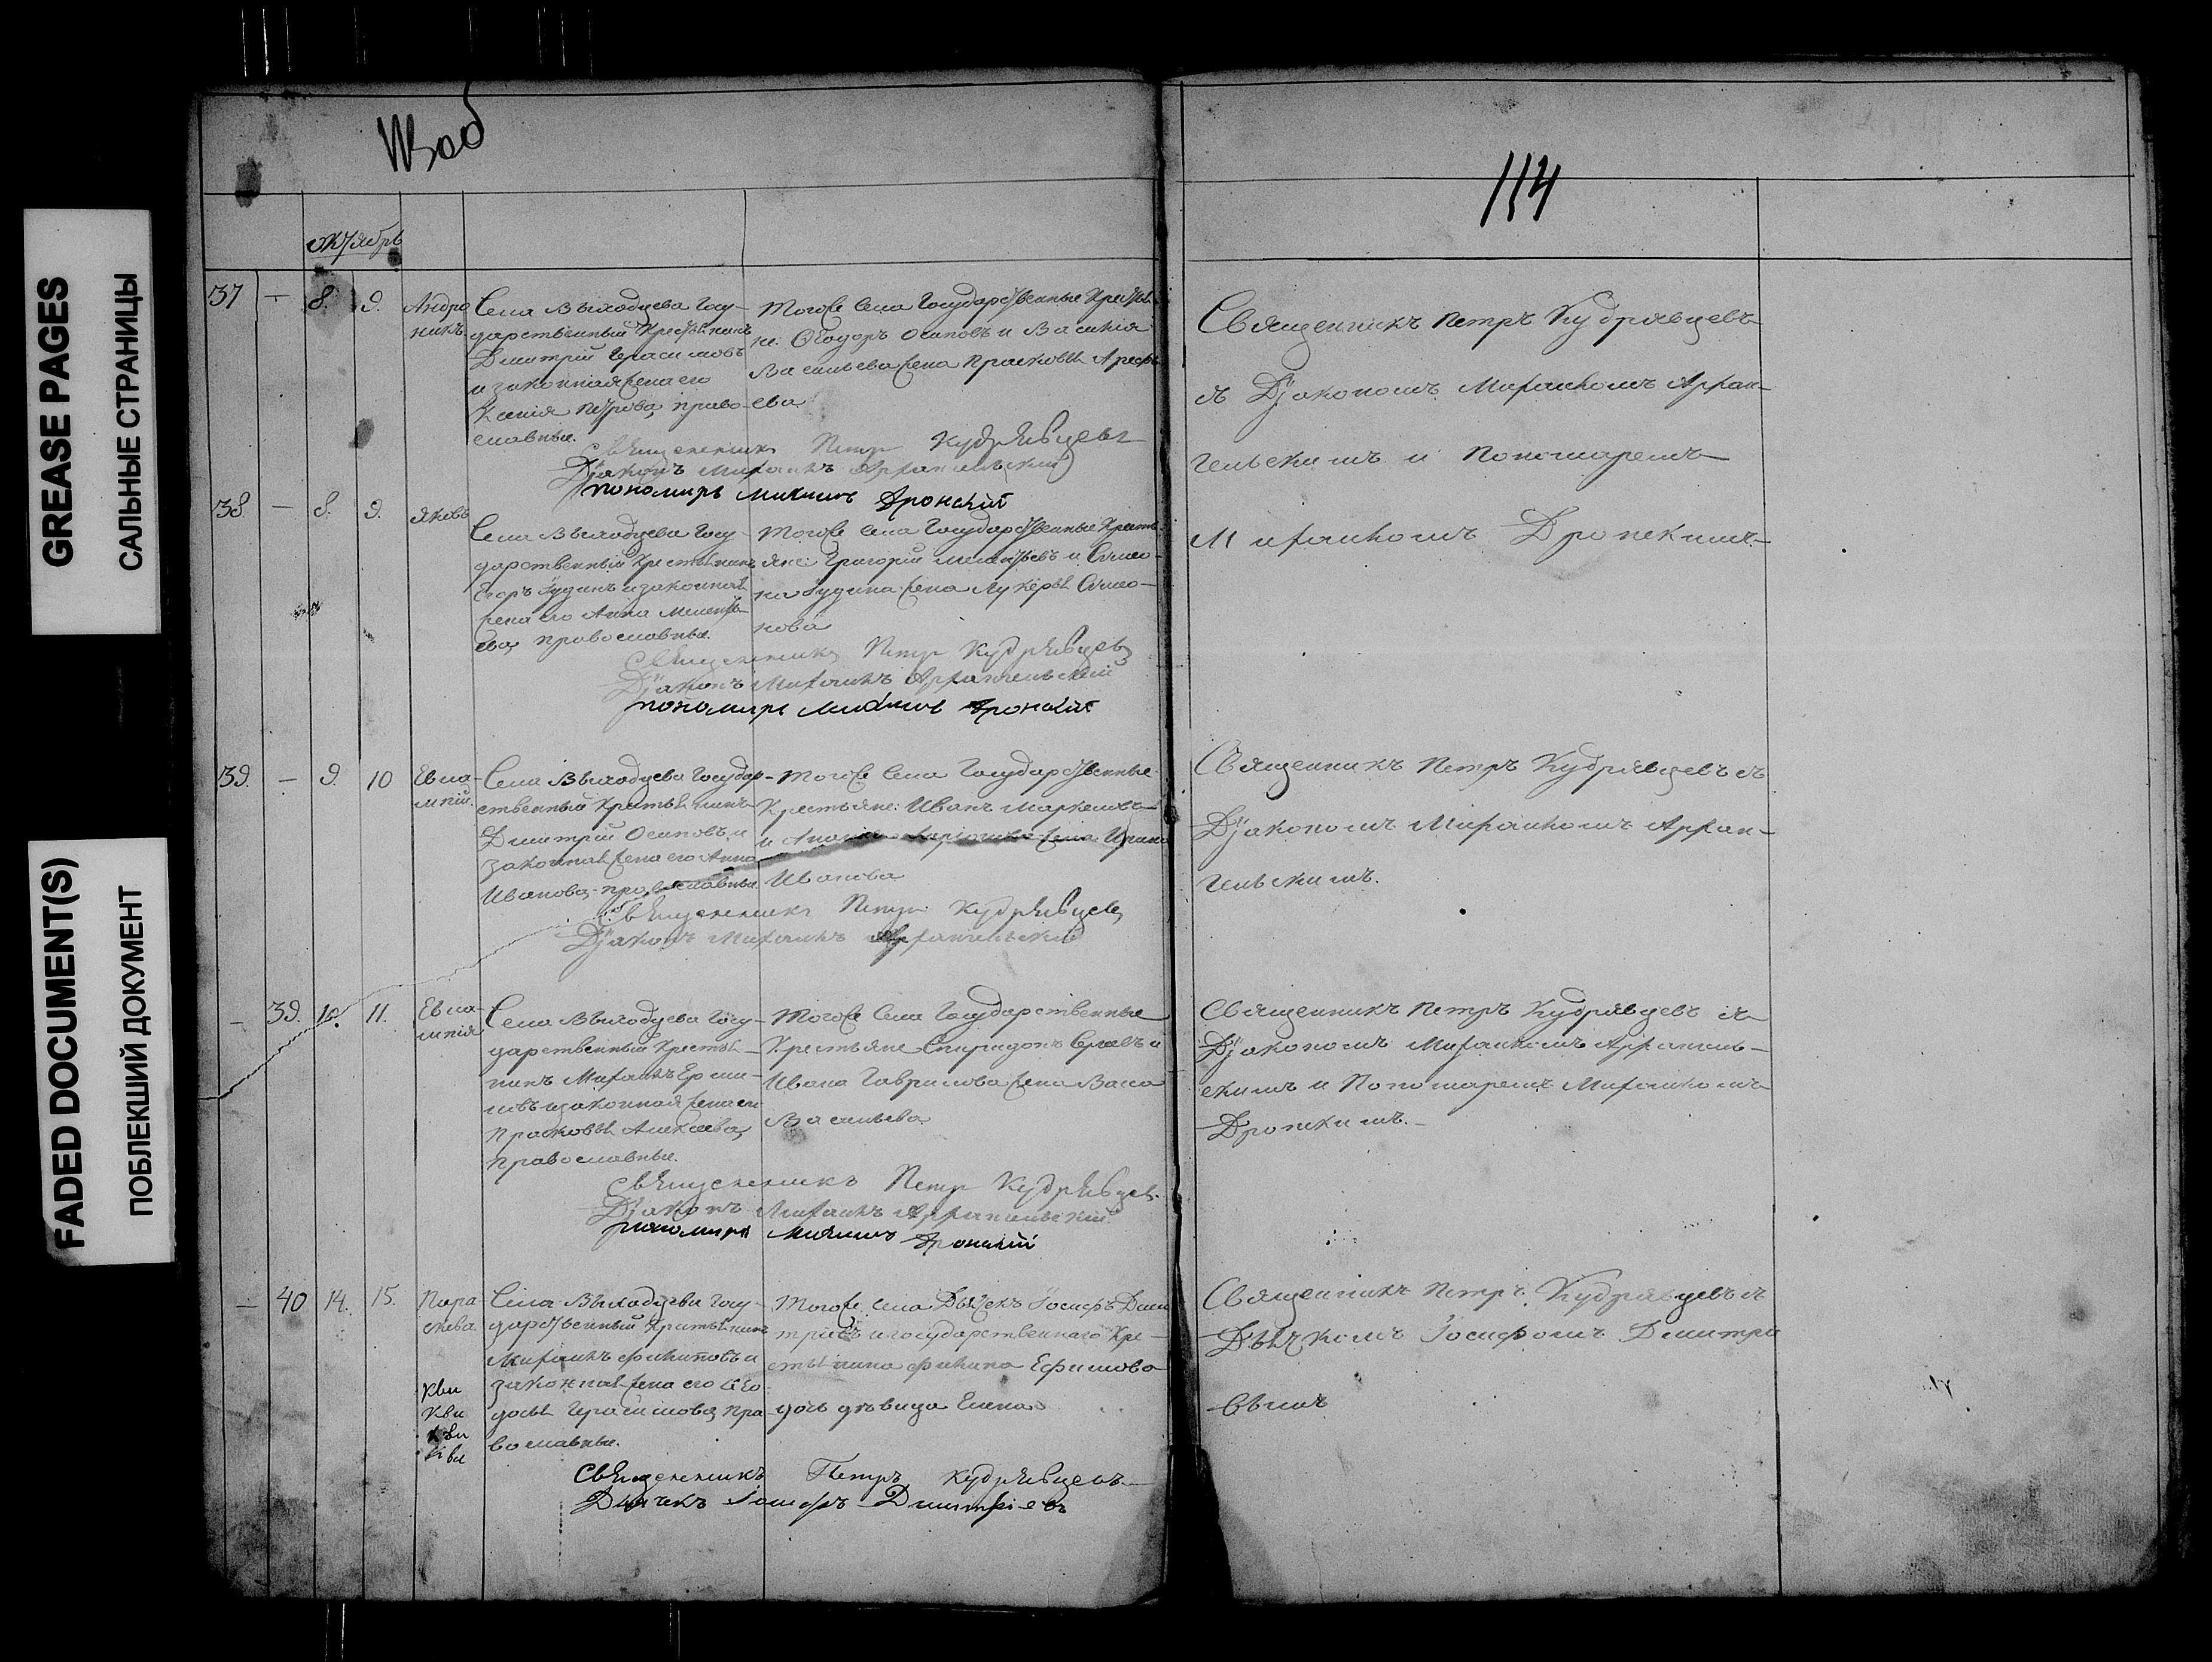 GREASE PAGES
САЛЬНЫЕ СТРАНИЦЫ
FADED DOCUMENT(S)
ПОБЛЕКШИЙ ДОКУМЕНТ
114
октябрь
37 — 8. 9.
Андро
никъ.
Села Выходцева Госу-
дарственный Крестьянинъ
Дмитрій Герасимовъ
и законная жена его
Ксенія Петрова, право-
славные.
Тогоже села Государственные Крестья
не: Ѳеодоръ Осиповъ и Василія
Васильева жена Прасковья Ареѳь
ева
Священникъ Петръ Кудрявцевъ
Діаконъ Михаилъ Архангельскій
пономарь Михаилъ Дронскій
Священникъ Петръ Кудрявцевъ
съ Діакономъ Михаиломъ Архан-
гельскимъ и Пономаремъ
Михаиломъ Дронскимъ.
38. — 8. 9.
Яковъ
Села Выходцева Госу-
дарственный Крестьянинъ
Іудинъ и законная
жена его Анна
ва, православные.
Тогоже села Государственные Кресть
яне: Григорій и Симео-
на Іудина жена Лукерья Симео-
нова
Священникъ Петръ Кудрявцевъ
Діаконъ Михаилъ Архангельскій
пономарь Михаилъ Дронскій
39. — 9. 10
Евла-
мпій.
Села Выходцева Государ-
ственный Крестьянинъ
Дмитрій Осиповъ и
законная жена его Анна
Иванова, православные
Тогоже села Государственные
Крестьяне: Иванъ Маркеловъ
и жена Ирина
Иванова
Священникъ Петръ Кудрявцевъ
Діаконъ Михаилъ Архангельскій
Священникъ Петръ Кудрявцевъ съ
Діакономъ Михаиломъ Архан-
гельскимъ.
— 39. 10. 11.
Евла-
мпія
Села Выходцева Госу-
дарственный Крестья-
нинъ Михаилъ
и законная жена его
Прасковья Алексѣева,
православные.
Тогоже села Государственные
Крестьяне Спиридонъ и
Ивана Гаврилова жена Васса
Васильева
Священникъ Петръ Кудрявцевъ
Діаконъ Михаилъ Архангельскій
пономарь Михаилъ Дронскій
Священникъ Петръ Кудрявцевъ съ
Діакономъ Михаиломъ Архангель-
скимъ и Пономаремъ Михаиломъ
Дронскимъ.
— 40 14. 15.
Пара
скева
Села Выходцева Госу-
дарственный Крестьянинъ
Михаилъ Филиповъ и
законная жена его Ѳео-
досья Герасимова, пра-
вославные.
Тогоже села Дьячекъ Іосифъ Дми
тріевъ и государственнаго Кре-
стьянина Филипа Ефимова
дочь дѣвица Елена
Священникъ Петръ Кудрявцевъ
Дьячекъ Іосифъ Дмитріевъ
Священникъ Петръ Кудрявцевъ съ
Дьячкомъ Іосифомъ Дмитріе
вымъ